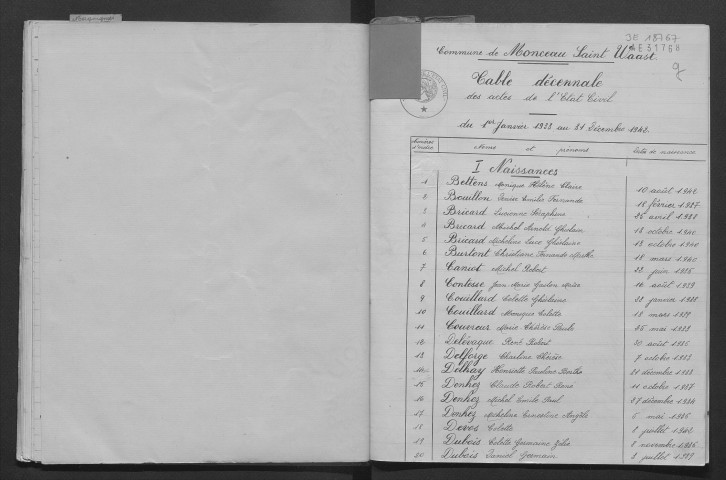 3E 18767
3E31768
9
Commune de Monceau Saint Waast.
Table décennale
des actes de l'Etat Civil
du 1er Janvier 1933 au 31 Décembre 1942.
Numéros d'ordre Noms et prénoms Dates de naissance
I Naissances
1 Bettens Monique Hélène Claire 10 août 1942
2 Bouillon Denise Emilie Fernande 18 février 1937
3 Bricard Lucienne Joséphine 15 avril 1933
4 Bricard Michel Arnold Ghislain 13 octobre 1940
5 Bricard Micheline Luce Ghislaine 13 octobre 1940
6 Burlont Christiane Fernande Marthe 18 mars 1940
7 Caniot Michel Robert juin 1936
8 Contesse Jean Marie Gaston août 1939
9 Couillard Colette Ghislaine janvier 1938
10 Couillard Monique Colette 13 mars 1939
11 Couvreur Marie Thérèse Paule mai 1939
12 Delévaque René Robert 30 août 1935
13 Delforge Charline Thérèse 7 octobre 1933
14 Delhay Henriette Pauline Berthe 21 décembre 1933
15 Denhez Claude Robert René 11 octobre 1937
16 Denhez Michel Emile Paul 27 décembre 1934
17 Denhez Micheline Ernestine Angèle 5 mai 1936
18 Devos Colette juillet 1942
19 Dubois Colette Germaine Zélie 8 novembre 1936
20 Dubois Daniel Germain 3 juillet 1939